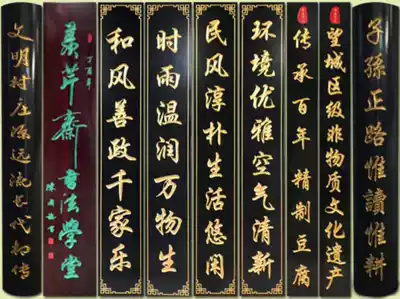 子孫正路惟讀惟耕
望城区级非物质文化遗产
传承百年精制豆腐
环境优雅空气清新
民风淳朴生活悠闲
时雨温润万物生
和风善政千家乐
丁酉年
芹斋书法学堂
文明村庄源远流长代传